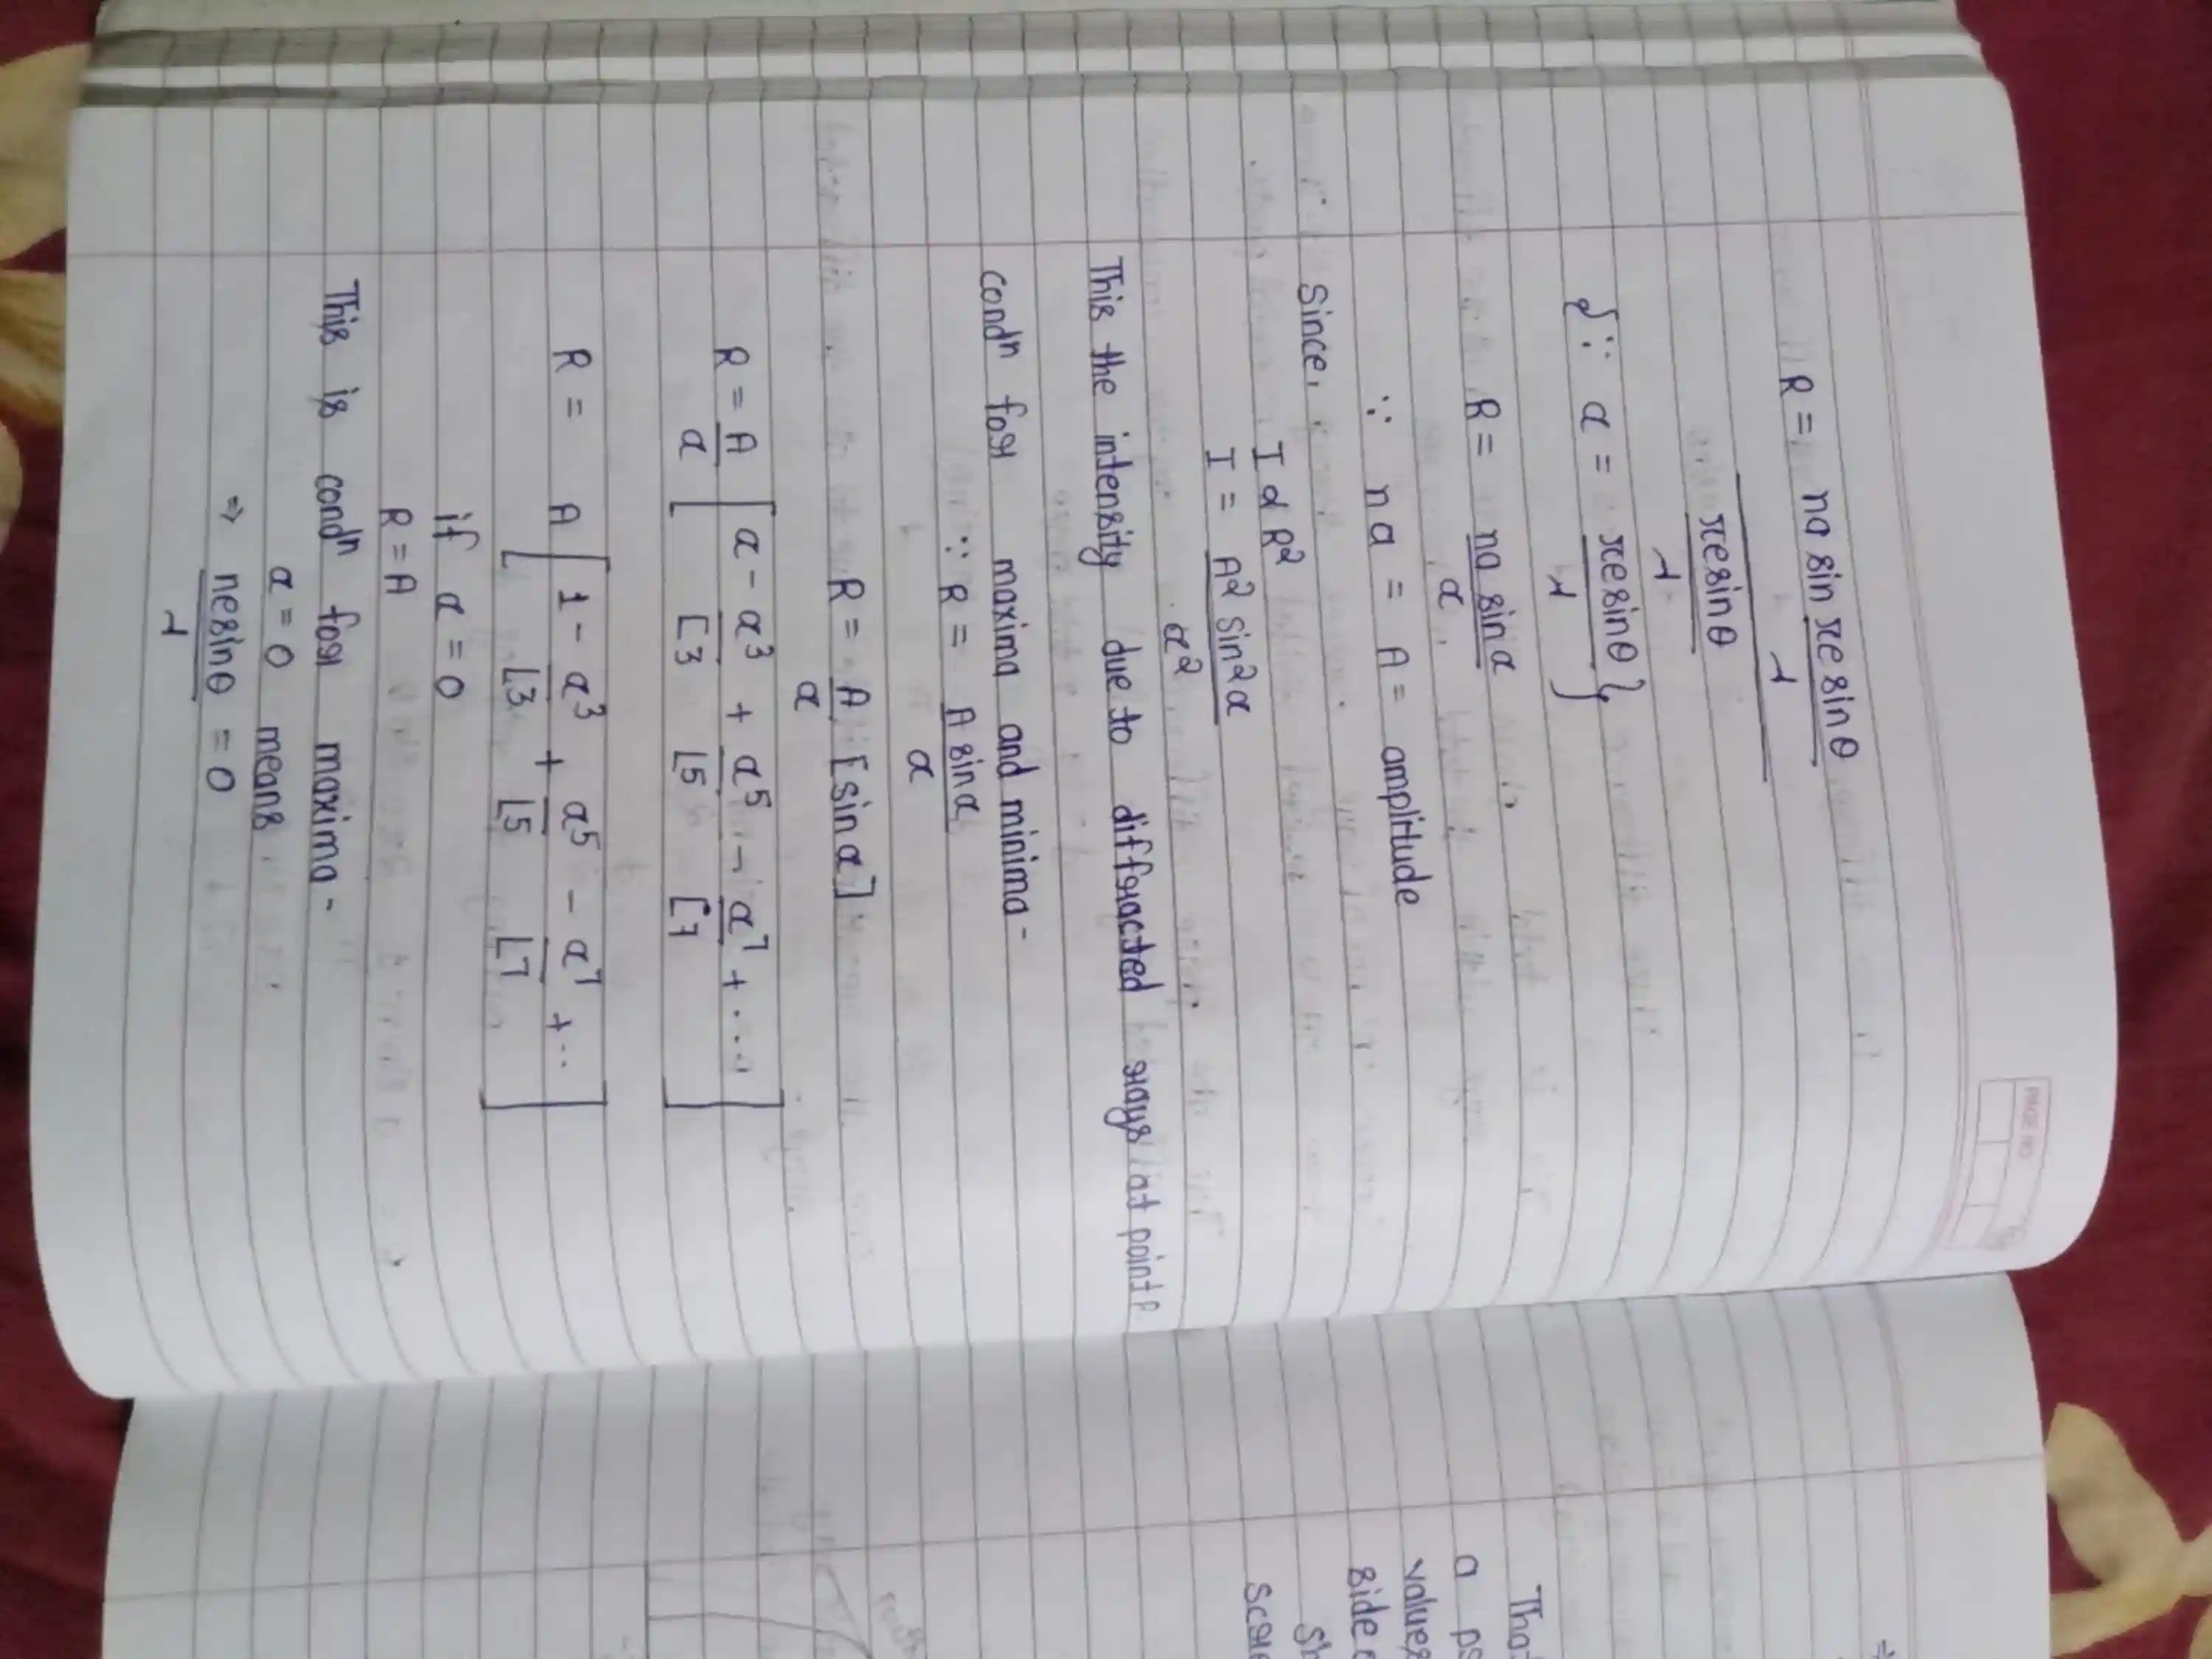 PAGE NO.
R = na sin πe sinθ
λ
πe sinθ
λ
{∵ α = πe sinθ}
λ
R = na sin α
α
∵ na = A = amplitude
Since,
I α R²
I = A² sin² α
α²
This the intensity due to diffracted rays at point P
condⁿ for maxima and minima -
∵ R = A sin α
α
R = A [sin α]
α
R = A [α - α³ + α⁵ - α⁷ + ...]
α ⌊3 ⌊5 ⌊7
R = A [1 - α³ + α⁵ - α⁷ + ...]
⌊3 ⌊5 ⌊7
if α = 0
R = A
This is condⁿ for maxima -
α = 0 means
⇒ πe sinθ = 0
λ
That
a ps
values
side
Sh
scre